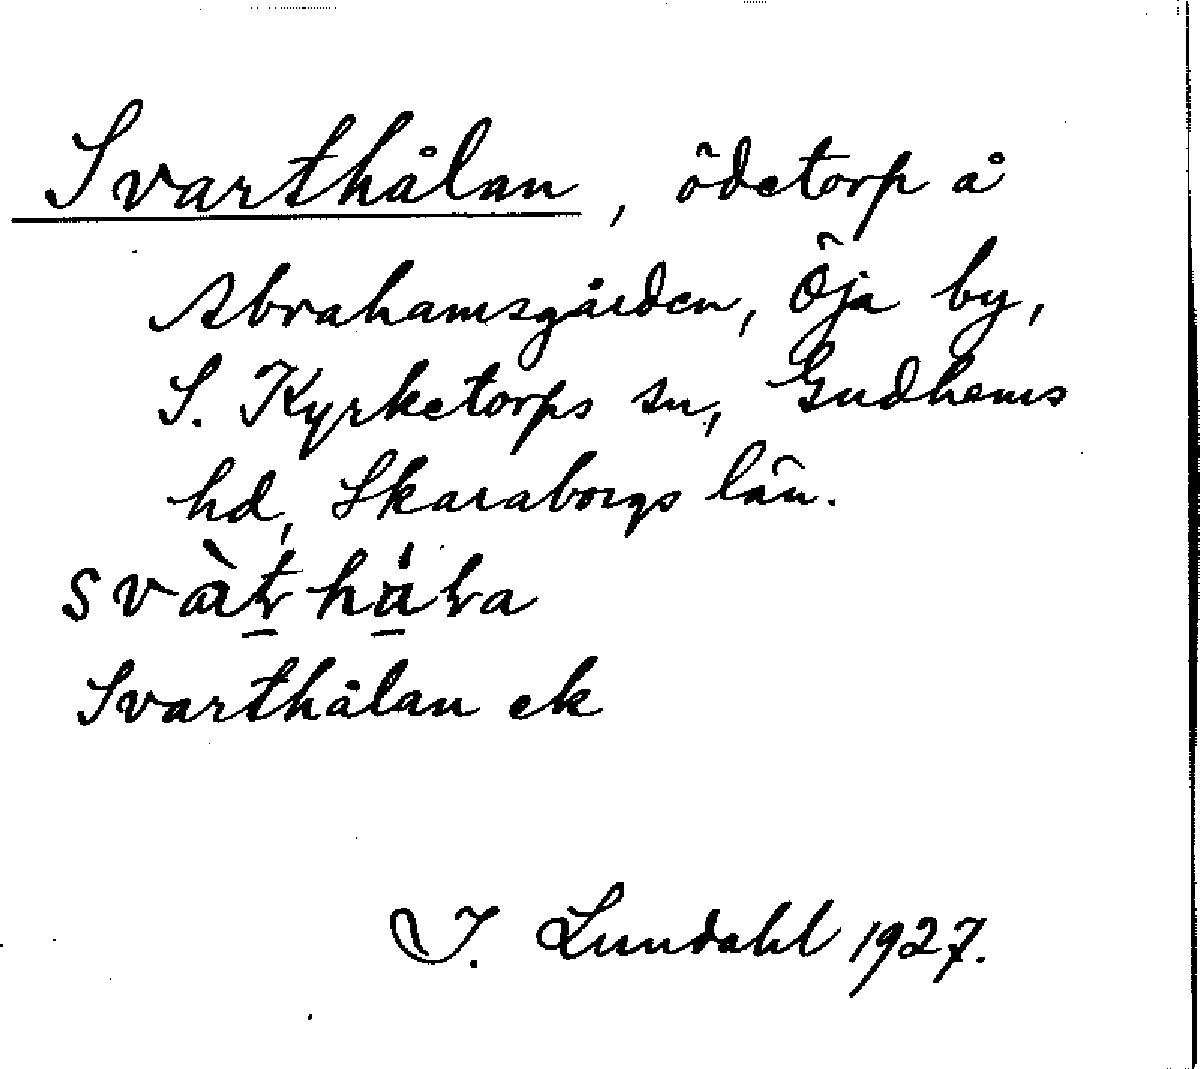 Svarthålan, ödetorp å
Abrahamsgården, Öja by,
S. Kyrketorps sn, Gudhems
hd, Skaraborgs län.
Svarthålan ek
I. Lundahl 1927.